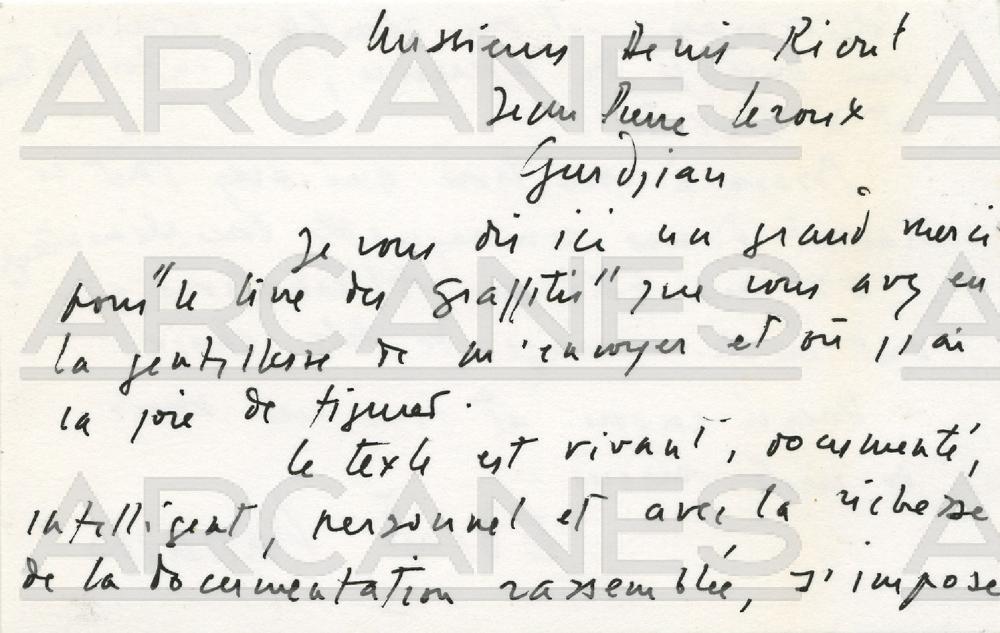 Messieurs Denis Riout
Jean Pierre Leroux
Gurdjian
Je vous dis ici un grand merci
pour "le livre des graffitis" que vous avez eu
la gentillesse de m'envoyer et où j'ai
la joie de figurer.
le texte est vivant, documenté,
intelligent, personnel et avec la richesse
de la documentation rassemblée, s'impose
ARCANES
ARCANES
ARCANES
ARCANES